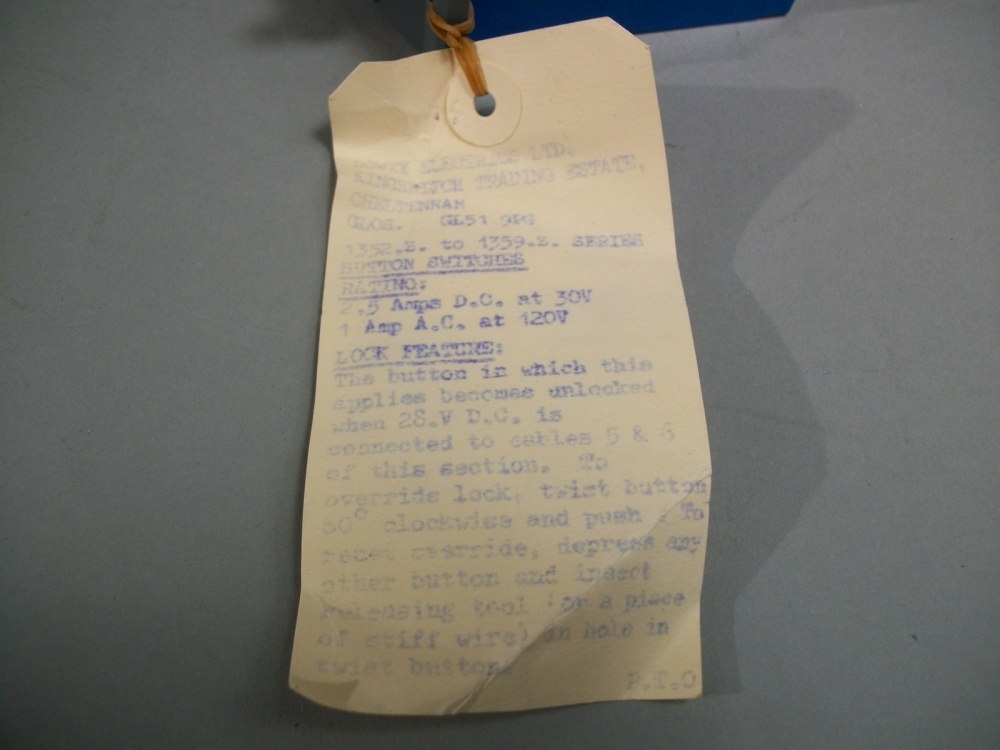 ELECTRICS LTD,
KINGSDITCH TRADING ESTATE,
CHELTENHAM
GLOS. GL51 9PG
1352.Z. to 1359.Z. SERIES
BUTTON SWITCHES
RATING:
2.5 Amps D.C. at 30V
1 Amp A.C. at 120V
LOCK FEATURE:
The button in which this
applies becomes unlocked
when 28.V D.C. is
connected to cables 5 & 6
of this section. To
override lock, twist button
60° clockwise and push. To
reset override, depress any
other button and insert
Releasing tool (or a piece
of stiff wire) in hole in
twist button.
P.T.O